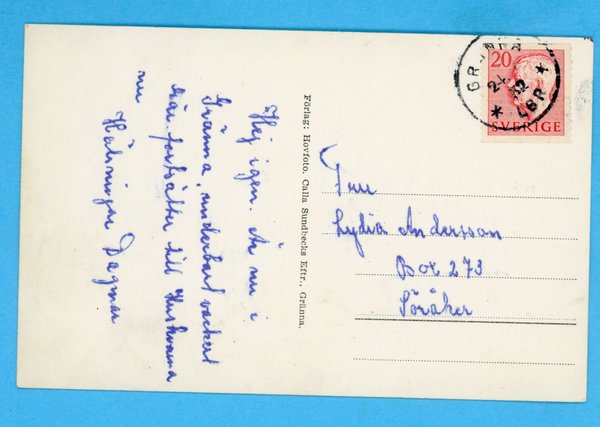 Hej igen. Är nu i
Gränna, underbart vackert
här fortsätter till Huskvarna
nu
Hälsningar Dagmar
Förlag: Hovfoto. Calla Sundbecks Eftr., Gränna.
GRÄNNA
LBR
20
SVERIGE
Fru
Lydia Andersson
Box 273
Söråker